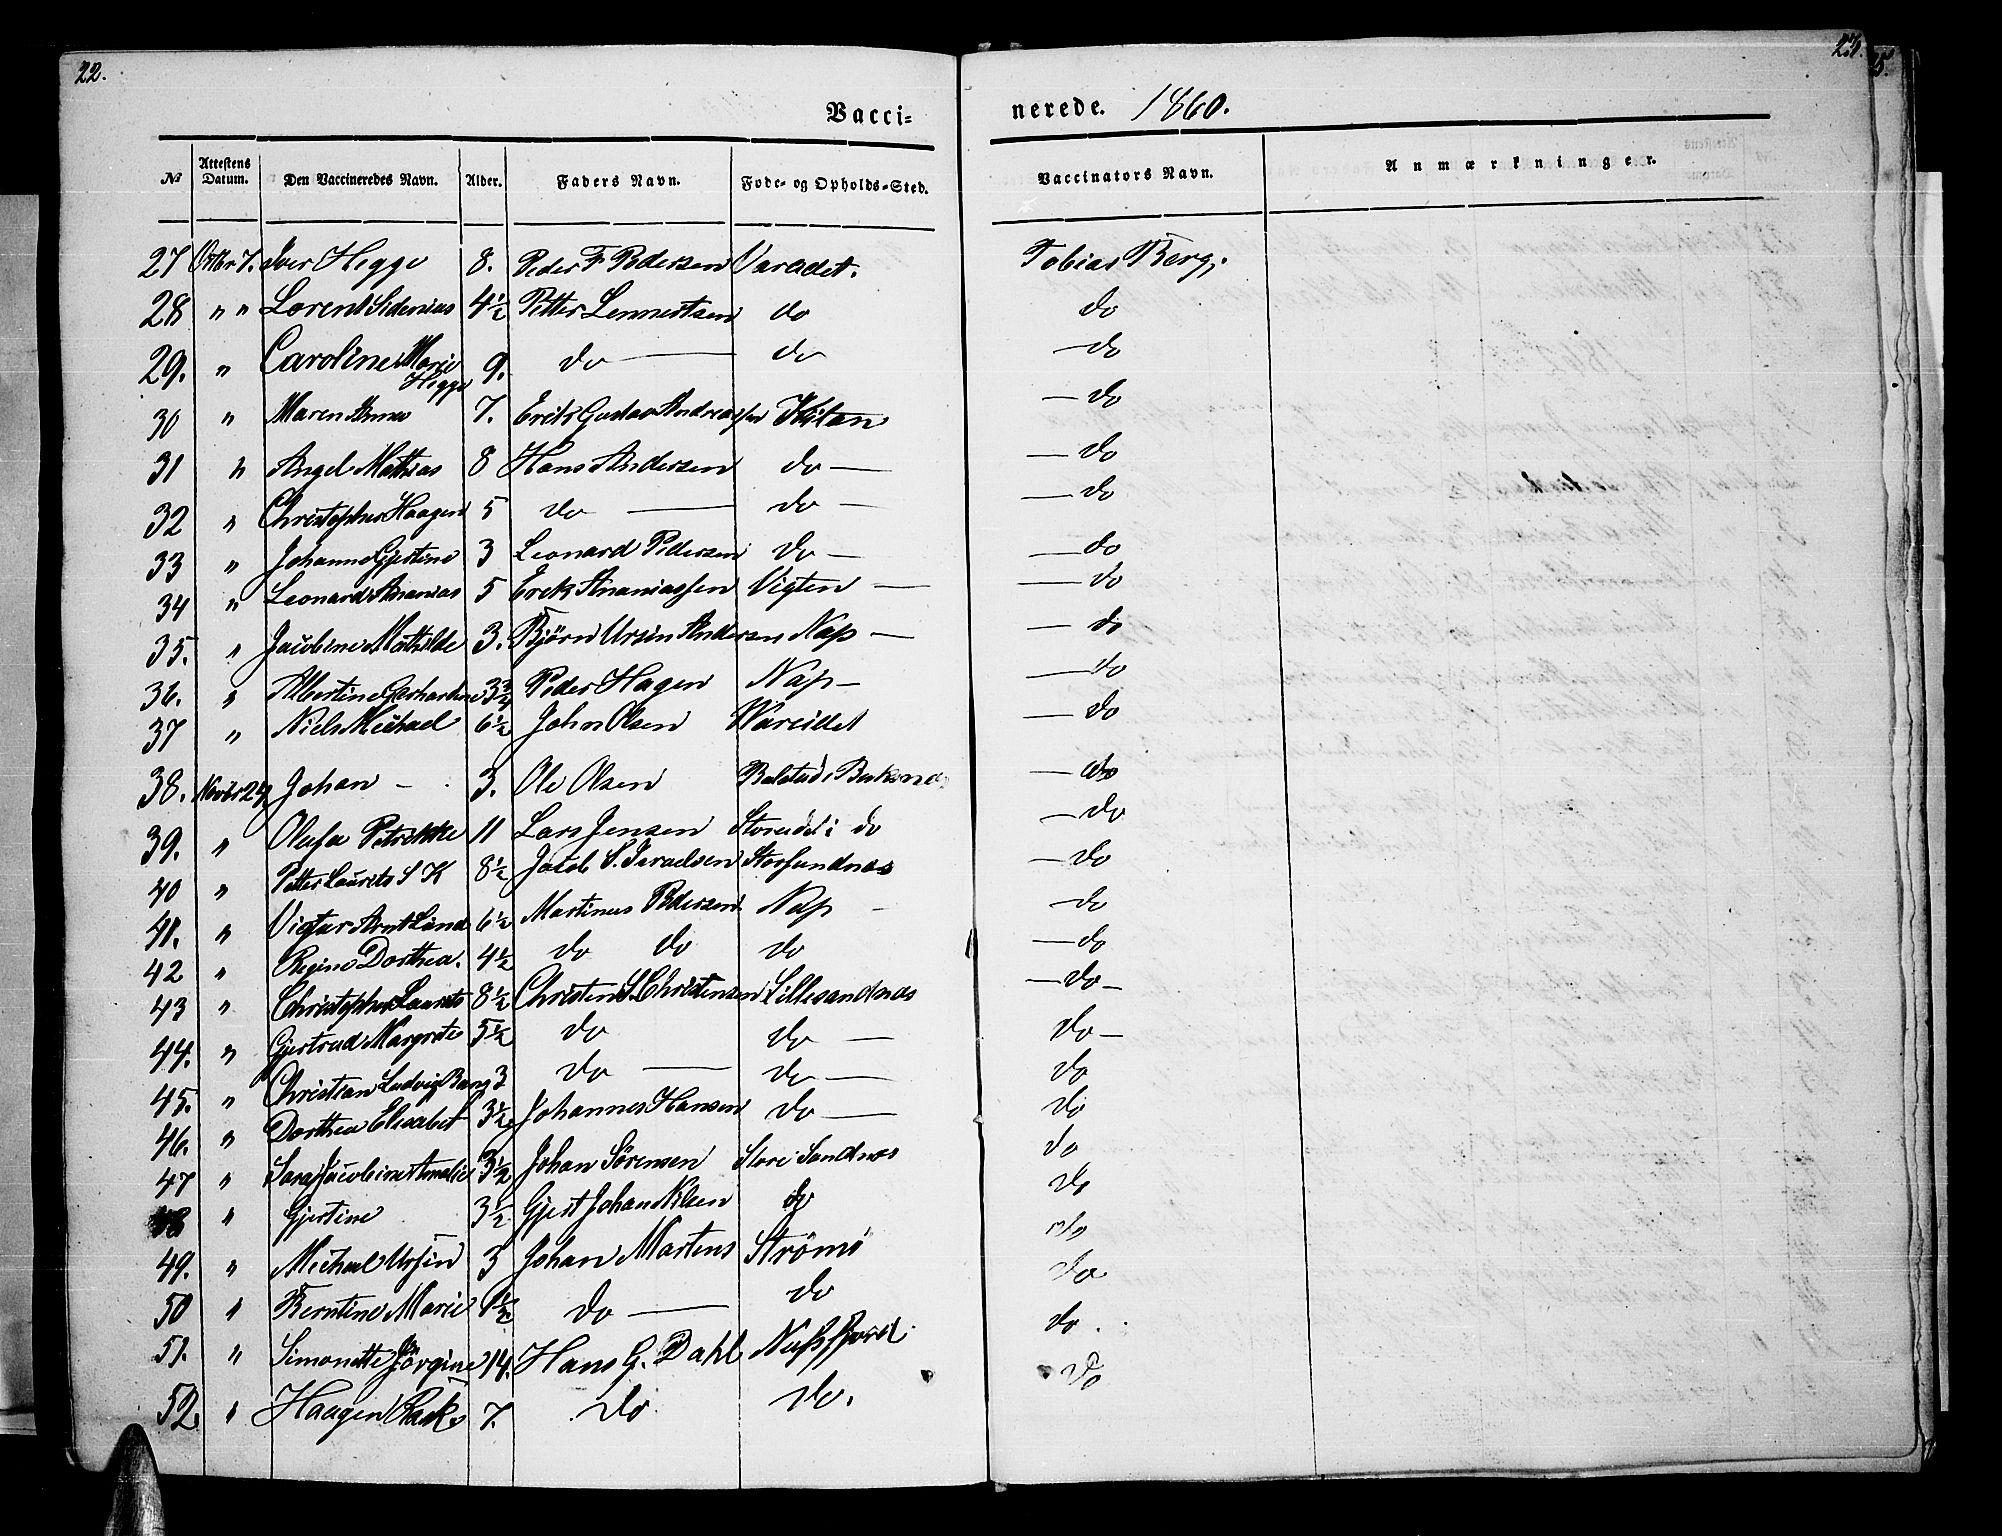 22.
23.
5.
Vacci-
nerede. 1860.
№ Attestens Datum. Den Vaccineredes Navn. Alder. Faders Navn. Føde- og Opholds-Sted. Vaccinators Navn. Anmærkninger.
27 Octbr 7. Iver Hegge 8. Peder F Pedersen Varadet. Tobias Berg.
28 " " Lorent Sidenias 4½ Petter Lennertsen do do
29. " Caroline Marie Hegge 9. do — do — do
30 " Maren Anna 7. Erik Gustav Andreassen — do
31 " Angel Mathias 8 Hans Andersen do — — do
32 " Christopher Haagen 5 do — do — — do
33 " Johanna Gjertine 3 Leonard Pedersen do — — do
34 " Leonard Ananias 5 Erek Ananiassen Vigten — — do
35. " Jacobine Mathilde 3. Bjørn Ursin Andersen Nap — — do
36. " Albertine Gerhardine 3¾ Peder Hagen Nap — — do
37 " Niels Michael 6½ John Olsen Wareidet — do
38. Novbr 24 Johan — 3. Ole Olsen Balstad i Buksnæs — do
39. " Olufa Petrikke 11 Lars Jensen Storeidet i do — do
40 " Petter Laurits S K 8½ Jacob S. Israelsen Storsandnæs — do
41. " Vigtar Arnt Lund 6½ Martinus Pedersen Nap — — do
42 " Regine Dorthea. 4½ do do do — do
43 " Christopher Laurits 8½ Christen S. Christensen Lillesandnæs — do —
44. " Gjertrud Margrete 5½ do do — do —
45. " Christian Ludvig Bang 3 do — do — do
46. " Dorthea Elisabet 3½ Johannes Hansen do — do
47 " Sara Jacobine Amalie 3½ Johan Sørensen Store Sandnæs do
48 " Gjertine 3½ Gjert Johan Nilsen do do
49. " Michael Ursin 3 Johan Martens Strømø do
50 " Berntine Marie do — do do
51. " Simonette Jörgine 14. Hans G. Dahl Nussfjord do
52. " Haagen 7. do do. do